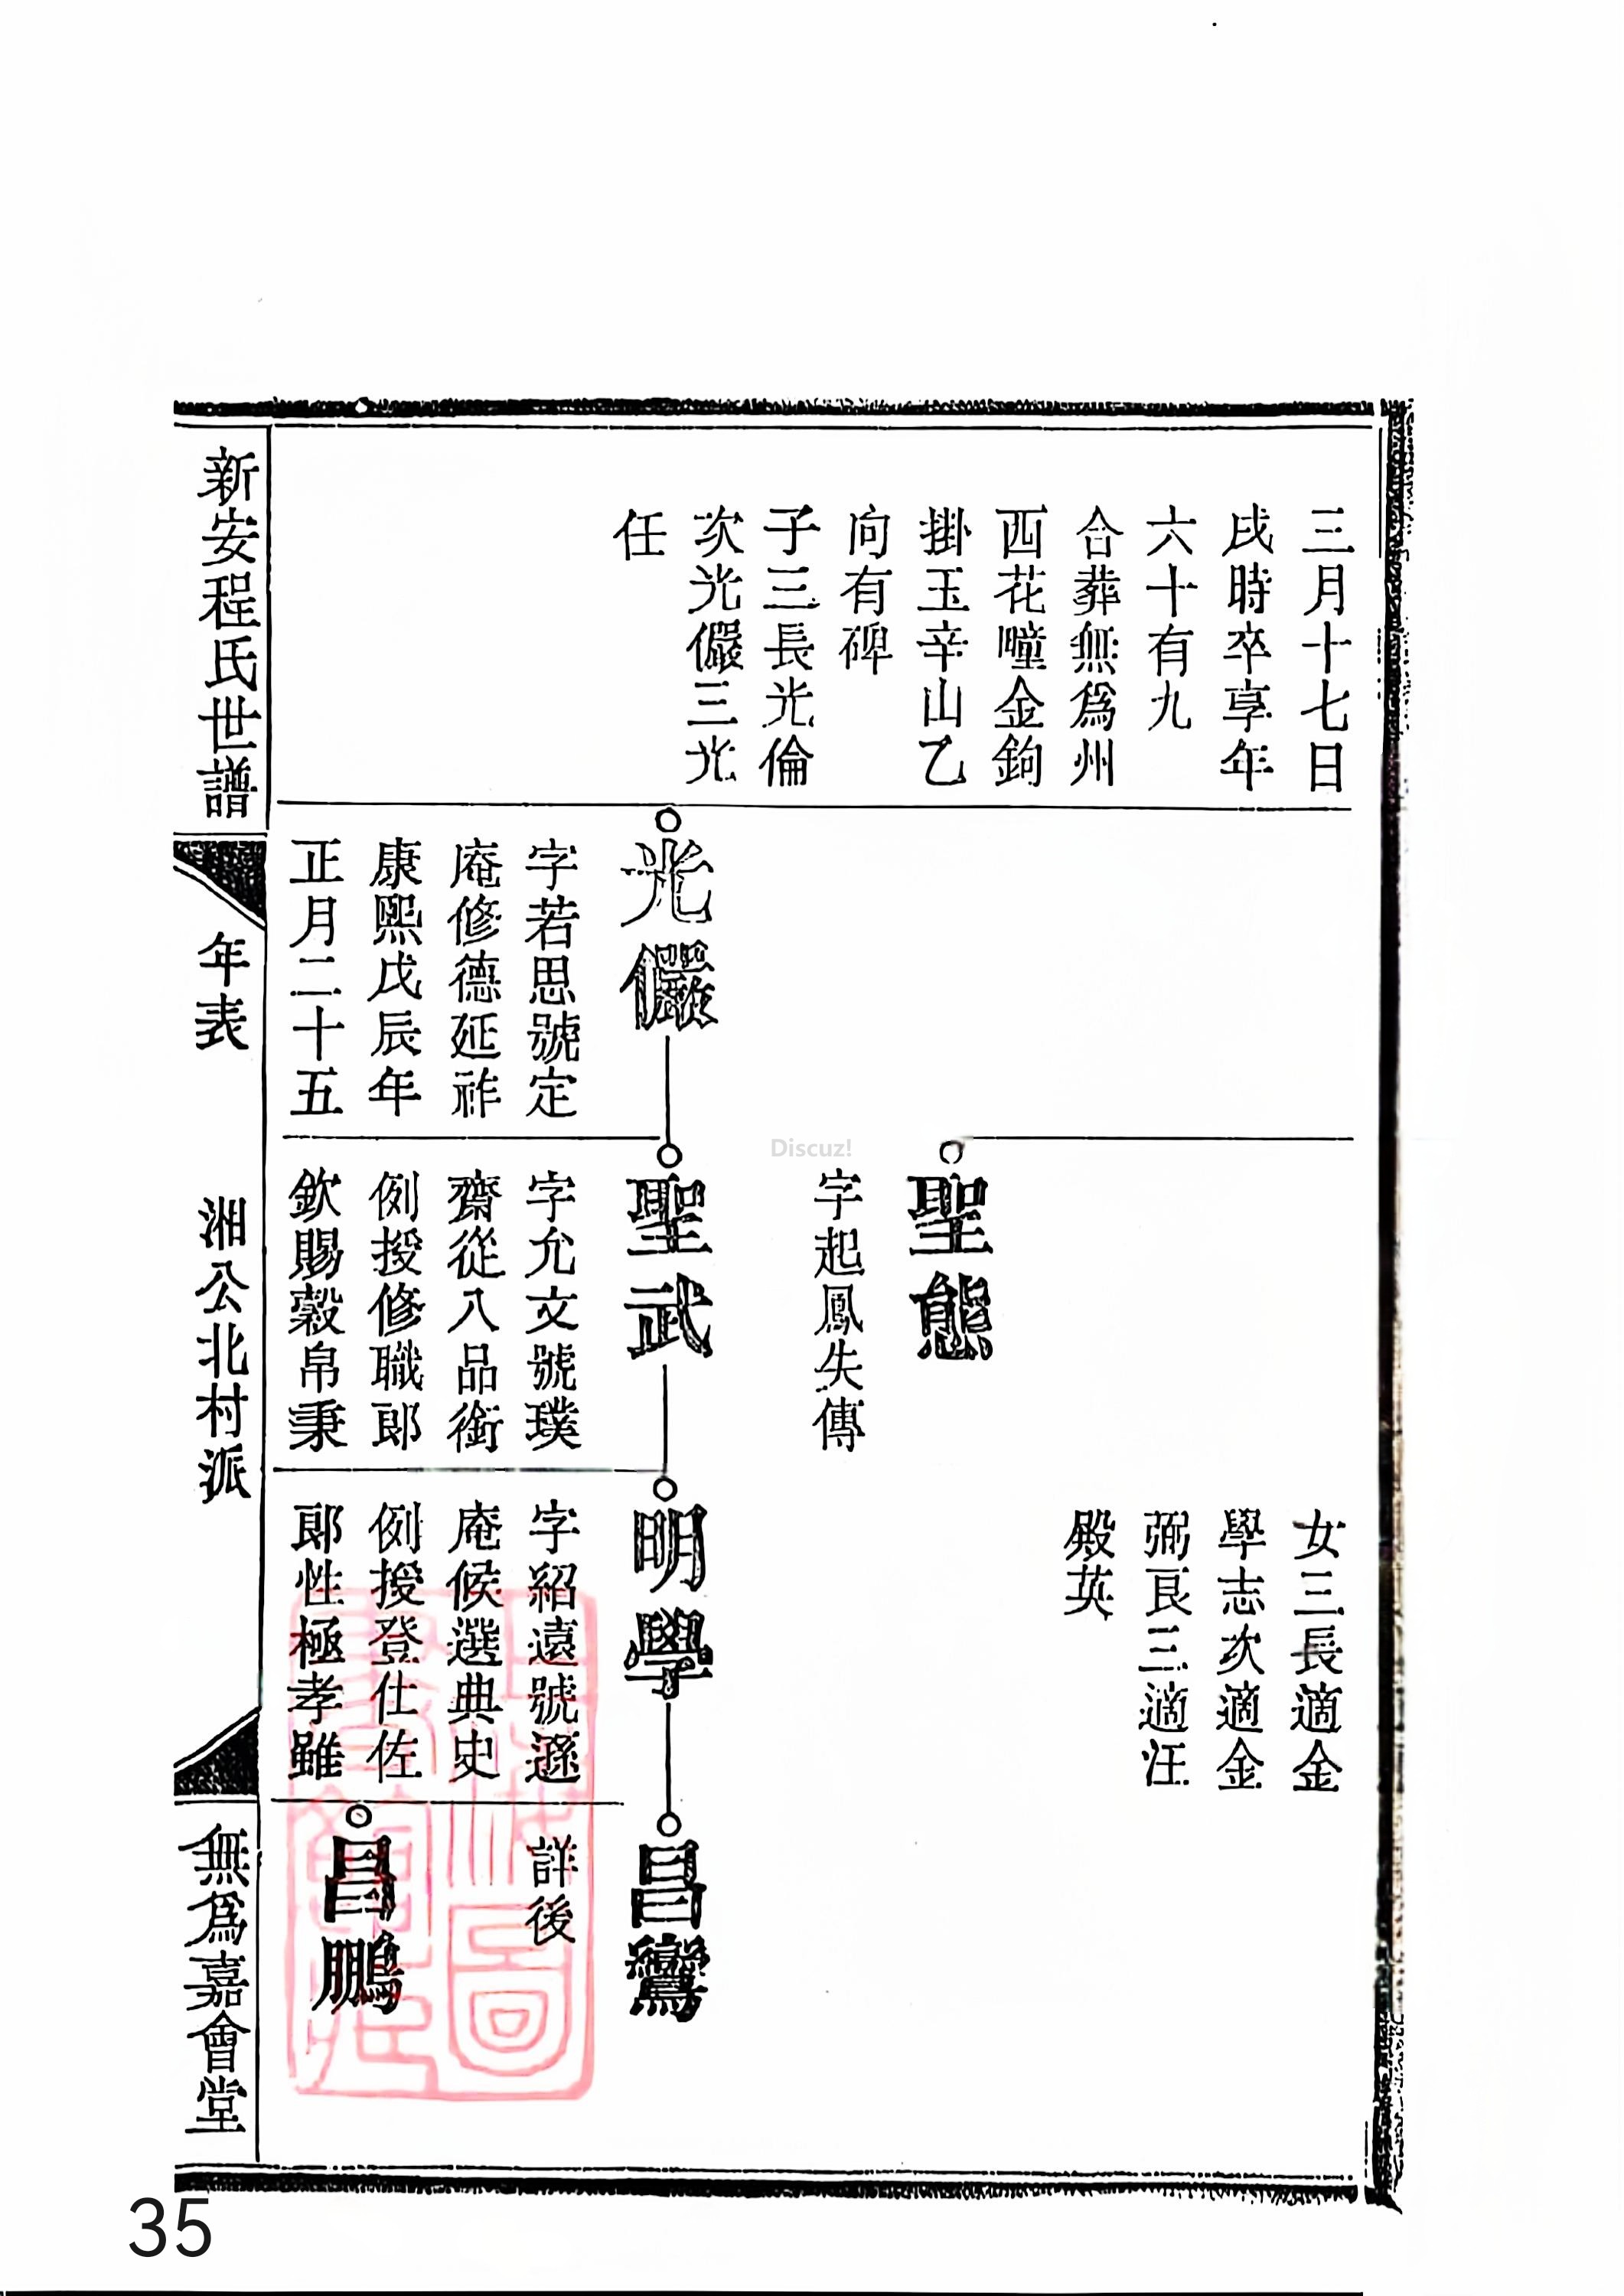 三月十七日
戌時卒享年
六十有九
合葬無爲州
西花疃金鉤
掛玉辛山乙
向有碑
子三長光倫
次光儼三光
任
光儼
字若思號定
庵修德延祚
康熙戊辰年
正月二十五
聖態
字起鳳失傳
聖武
字允文號璞
齋從八品銜
例授修職郎
欽賜穀帛秉
女三長適金
學志次適金
弼良三適汪
殿英
明學
字紹遠號遜
庵候選典史
例授登仕佐
郎性極孝雖
昌鸞
詳後
昌鵬
新安程氏世譜
年表
湘公北村派
無爲嘉會堂
Discuz!
35